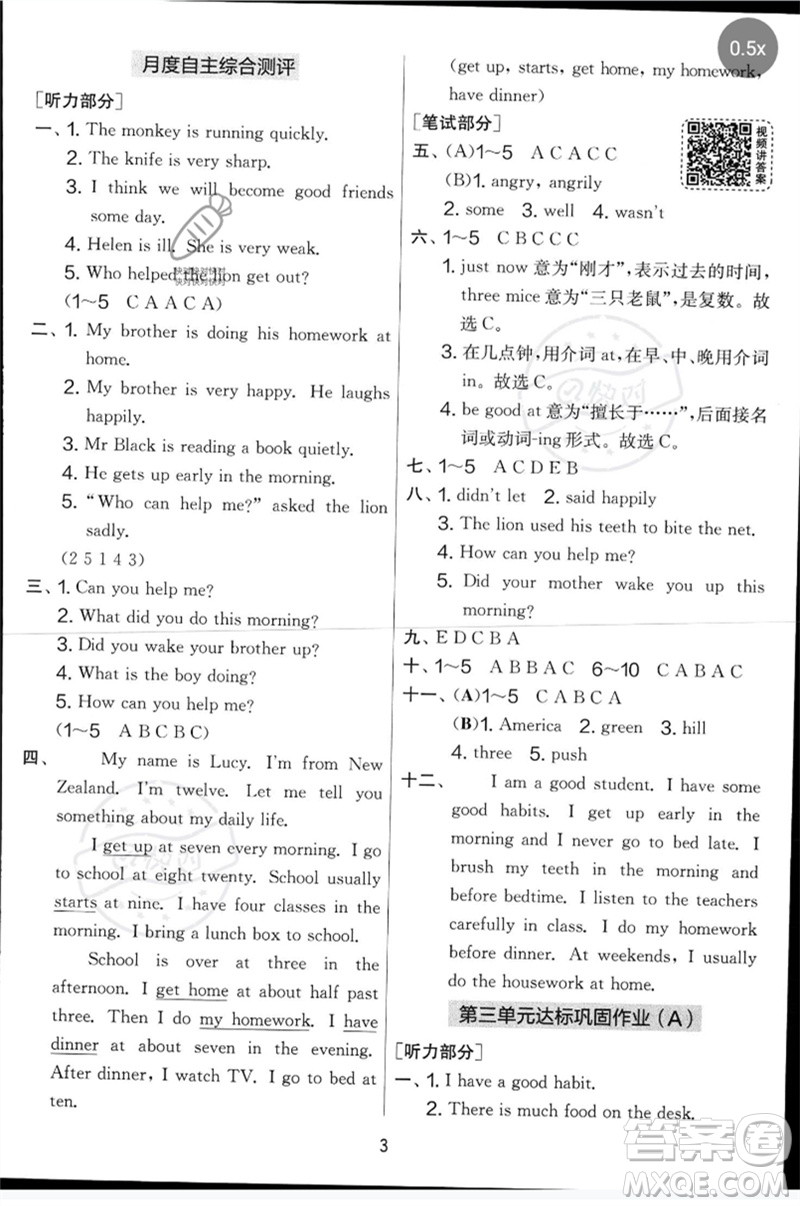 0.5x
月度自主综合测评
[听力部分]
一、1. The monkey is running quickly.
2. The knife is very sharp.
3. I think we will become good friends
some day.
4. Helen is ill. She is very weak.
5. Who helped the lion get out?
(1～5 C A A C A)
二、1. My brother is doing his homework at
home.
2. My brother is very happy. He laughs
happily.
3. Mr Black is reading a book quietly.
4. He gets up early in the morning.
5. “Who can help me?” asked the lion
sadly.
(2 5 1 4 3)
三、1. Can you help me?
2. What did you do this morning?
3. Did you wake your brother up?
4. What is the boy doing?
5. How can you help me?
(1～5 A B C B C)
四、 My name is Lucy. I'm from New
Zealand. I'm twelve. Let me tell you
something about my daily life.
I get up at seven every morning. I go
to school at eight twenty. School usually
starts at nine. I have four classes in the
morning. I bring a lunch box to school.
School is over at three in the
afternoon. I get home at about half past
three. Then I do my homework. I have
dinner at about seven in the evening.
After dinner, I watch TV. I go to bed at
ten.
(get up, starts, get home, my homework,
have dinner)
[笔试部分]
五、(A)1～5 A C A C C
(B)1. angry, angrily
2. some 3. well 4. wasn't
视频讲答案
六、1～5 C B C C C
1. just now 意为“刚才”,表示过去的时间,
three mice 意为“三只老鼠”,是复数。故
选 C。
3. 在几点钟,用介词 at,在早、中、晚用介词
in。故选 C。
4. be good at 意为“擅长于……”,后面接名
词或动词-ing 形式。故选 C。
七、1～5 A C D E B
八、1. didn't let 2. said happily
3. The lion used his teeth to bite the net.
4. How can you help?
5. Did your mother wake you up this
morning?
九、E D C B A
十、1～5 B A C A C 6～10 C A B A C
十一、(A)1～5 C A B C A
(B)1. America 2. green 3. hill
4. three 5. push
十二、 I am a good student. I have some
good habits. I get up early in the
morning and I never go to bed late. I
brush my teeth in the morning and
before bedtime. I listen to the teachers
carefully in class. I do my homework
before dinner. At weekends, I usually
do the housework at home.
第三单元达标巩固作业(A)
[听力部分]
一、1. I have a good habit.
2. There is much food on the desk.
3
答案卷
MXQE.COM